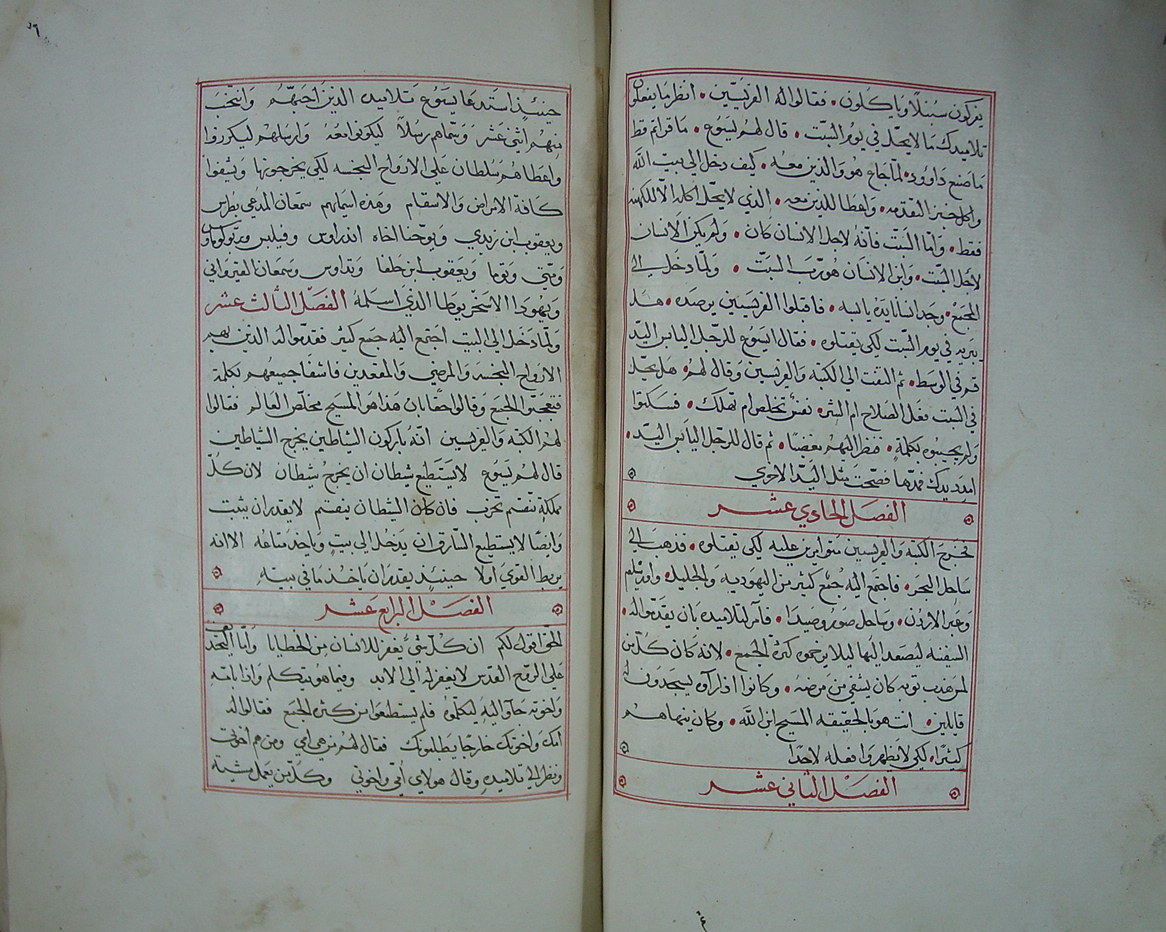 يفركون سنبلا وياكلون. فقالوا له الفريسيين. انظر ما يفعلون
تلاميذك ما لا يحل في يوم السبت. قال لهم يسوع. ما قراتم قط
ما صنع داوود. لما جاع هو والذين معه. كيف دخل الى بيت الله
واكل خبز التقدمه. واعطا للذين معه. الذي لا يحل اكله الا للكهنه
فقط. واما السبت فانه لاجل الانسان كان. ولم يكن الانسان
لاجل السبت. وابن الانسان هو رب السبت. ولما دخل الى
المجمع. وجد انسانا يده يابسه. فاقبلوا الفريسيين يرصده. هل
يبريه في يوم السبت لكي يقتلوه. فقال اليسوع للرجل اليابس اليد
قم في الوسط. ثم التفت الى الكتبه والفريسيين وقال لهم. هل يحل
في السبت فعل الصلاح ام الشر. نفس تخلص ام تهلك. فسكتوا
ولم يجيبوه بكلمة. فنظر اليهم بغضبا. ثم قال للرجل اليابس اليد.
امدد يدك فمدها فصحت مثل اليد الاخري
الفصل الحادي عشر
فخرج الكتبه والفريسيين متوامرين عليه لكي يقتلوه. فذهب الى
ساحل البحر. فاجتمع اليه جمع كثير من اليهوديه والجليل. واورشليم
وعبر الاردن. وساحل صور وصيدا. فامر التلاميذ بان يقدموا له.
السفينه ليصعد اليها ليلا يزحموه كثرة الجمع. لانه كان كل من
لمس هدب ثوبه كان يشفي من مرضه. وكانوا اذا راوه يسجدون له
قايلين. انت هو بالحقيقه المسيح ابن الله. وكان ينهاهم
كثيرا. لكي لا يظهروا فعله لاحدا
الفصل الثاني عشر
حينيذ استدعا يسوع تلاميذه الذين احبهم وانتخب
منهم اثنى عشر وسماهم رسلا ليكونوا معه وارسلهم ليكرزوا
واعطاهم سلطان على الارواح النجسه لكي يخرجونها ويشفوا
كافة الامراض والاسقام وهذه اسماهم سمعان المدعي بطرس
ويعقوب ابن زبدي ويوحنا اخاه اندراوس وفيلبس وبرتولوماوس
ومتى وتوما ويعقوب ابن حلفا وتداوس وسمعان القيرواني
ويهودا الاسخريوطا الذي اسلمه الفصل الثالث عشر
ولما دخل الى البيت اجتمع اليه جمع كثير فقدموا له الذين بهم
الارواح النجسه والمرضى والمقعدين فاشفا جميعهم بكلمة
فتعجبوا الجمع وقالوا حقا بان هذا هو المسيح مخلص العالم فقالوا
لهم الكتبه والفريسيين انه باركون الشياطين يخرج الشياطين
قال لهم يسوع لا يستطيع شيطان ان يخرج شيطان لان كل
مملكة تنقسم تخرب فان كان الشيطان ينقسم لا يقدر ان يثبت
وايضا لا يستطيع السارق ان يدخل الى بيت وياخذ متاعه الا انه
يربط القوي اولا حينيذ يقدر ان ياخذ ما في بيته
الفصل الرابع عشر
الحق اقول لكم ان كل شي يغفر للانسان من الخطايا واما التجديف
على الروح القدس لا يغفر له الى الابد وفيما هو يتكلم واذا بامه
واخوته جاوا اليه ليكلموه فلم يستطيعوا من كثرة الجمع فقالوا له
امك واخوتك خارجا يطلبونك فقال لهم من هي امي ومن هم اخوتي
ونظر الى تلاميذه وقال هولاي امي واخوتي وكل من يعمل مشية